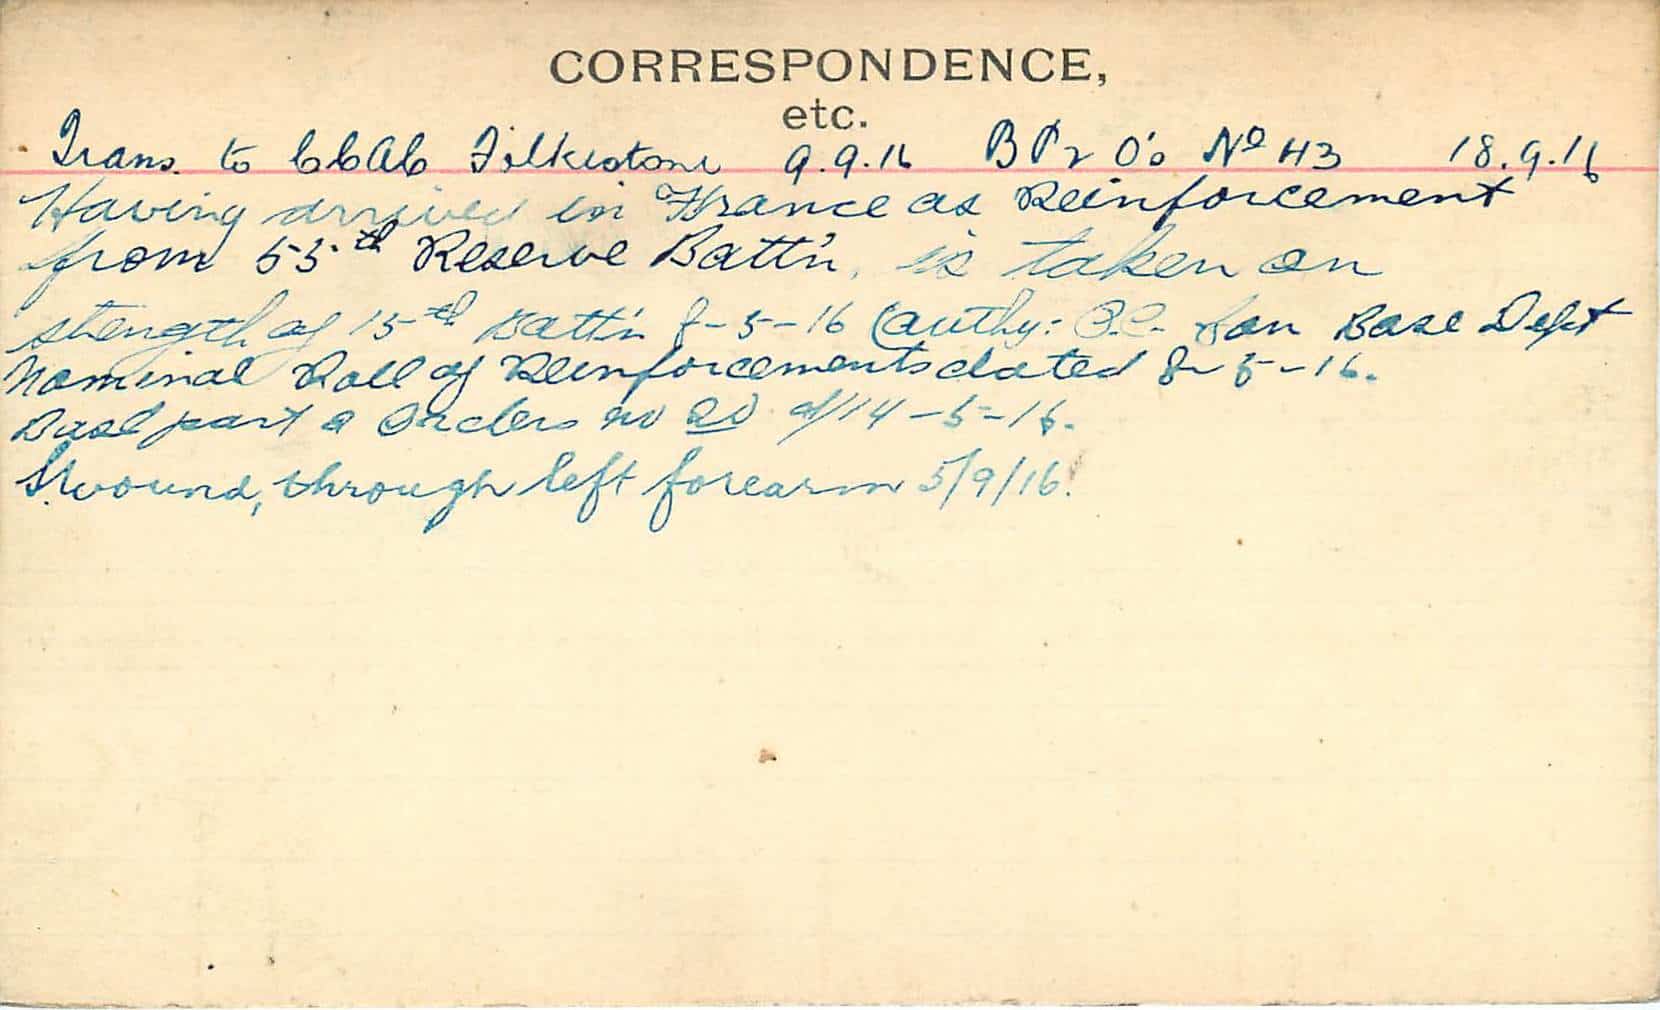 CORRESPONDENCE,
etc.
Trans. to CCAC Folkestone 9.9.16 B Pt 2 O's No 43 18.9.16
Having arrived in France as Reinforcement
from 55th Reserve Batt'n, is taken on
strength of 15th Batt'n 8-5-16 (authy: Can Base Dept
Nominal Roll of Reinforcements dated 8-5-16.
Base part 2 Orders no 20 d/14-5-16.
wound, through left forearm 5/9/16.